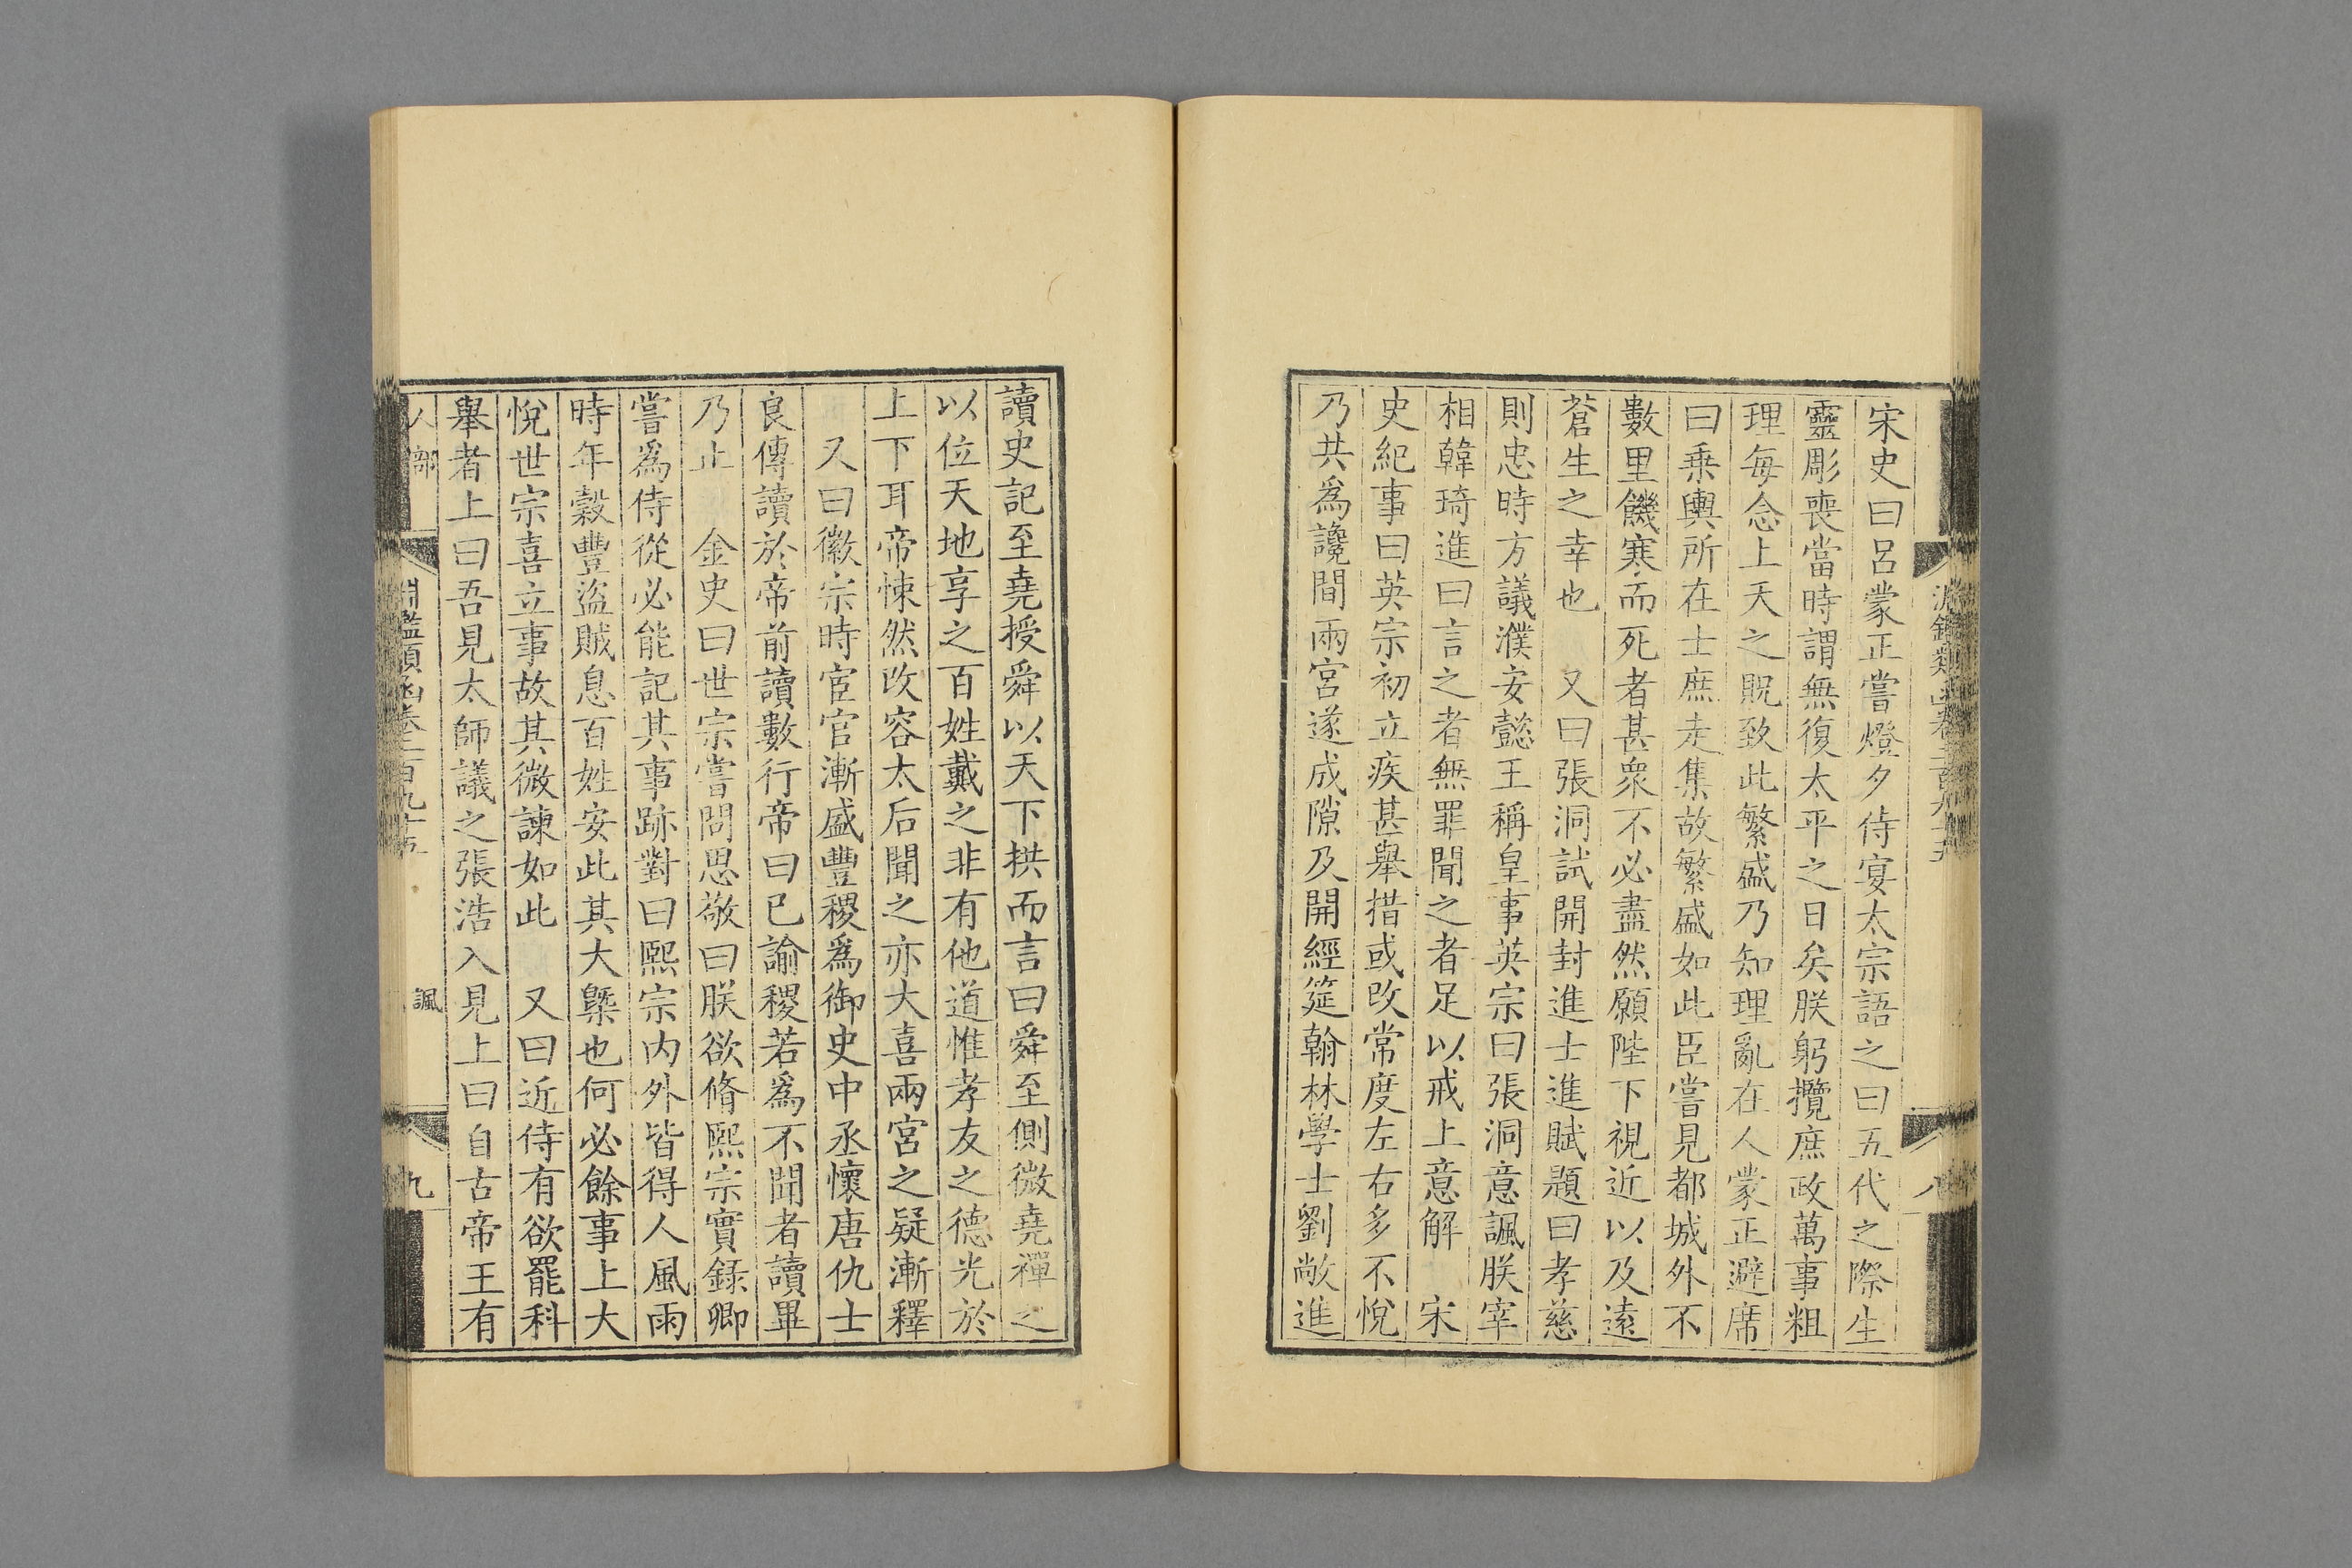 宋史曰呂蒙正嘗燈夕侍宴太宗語之曰五代之際生
靈彫喪當時謂無復太平之日矣朕躬攬庶政萬事粗
理每念上天之貺致此繁盛乃知理亂在人蒙正避席
曰乘輿所在士庶走集故繁盛如此臣嘗見都城外不
數里饑寒而死者甚衆不必盡然願陛下視近以及遠
蒼生之幸也 又曰張洞試開封進士進賦題曰孝慈
則忠時方議濮安懿王稱皇事英宗曰張洞意諷朕宰
相韓琦進曰言之者無罪聞之者足以戒上意解 宋
史紀事曰英宗初立疾甚舉措或改常度左右多不悅
乃共爲讒間兩宮遂成隙及開經筵翰林學士劉敞進
讀史記至堯授舜以天下拱而言曰舜至側微堯禪之
以位天地享之百姓戴之非有他道惟孝友之德光於
上下耳帝悚然改容太后聞之亦大喜兩宮之疑漸釋
又曰徽宗時宦官漸盛豐稷爲御史中丞懷唐仇士
良傳讀於帝前讀數行帝曰已諭稷若爲不聞者讀畢
乃止 金史曰世宗嘗問思敬曰朕欲脩熙宗實錄卿
嘗爲侍從必能記其事跡對曰熙宗內外皆得人風雨
時年穀豐盜賊息百姓安此其大槩也何必餘事上大
悅世宗喜立事故其微諫如此 又曰近侍有欲罷科
舉者上曰吾見太師議之張浩入見上曰自古帝王有
人部 淵鑑類函卷二百九十五 諷 九